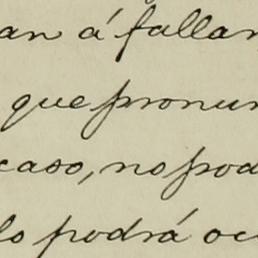 an á fallar
que pronun
caso, no pod
lo podrá oc